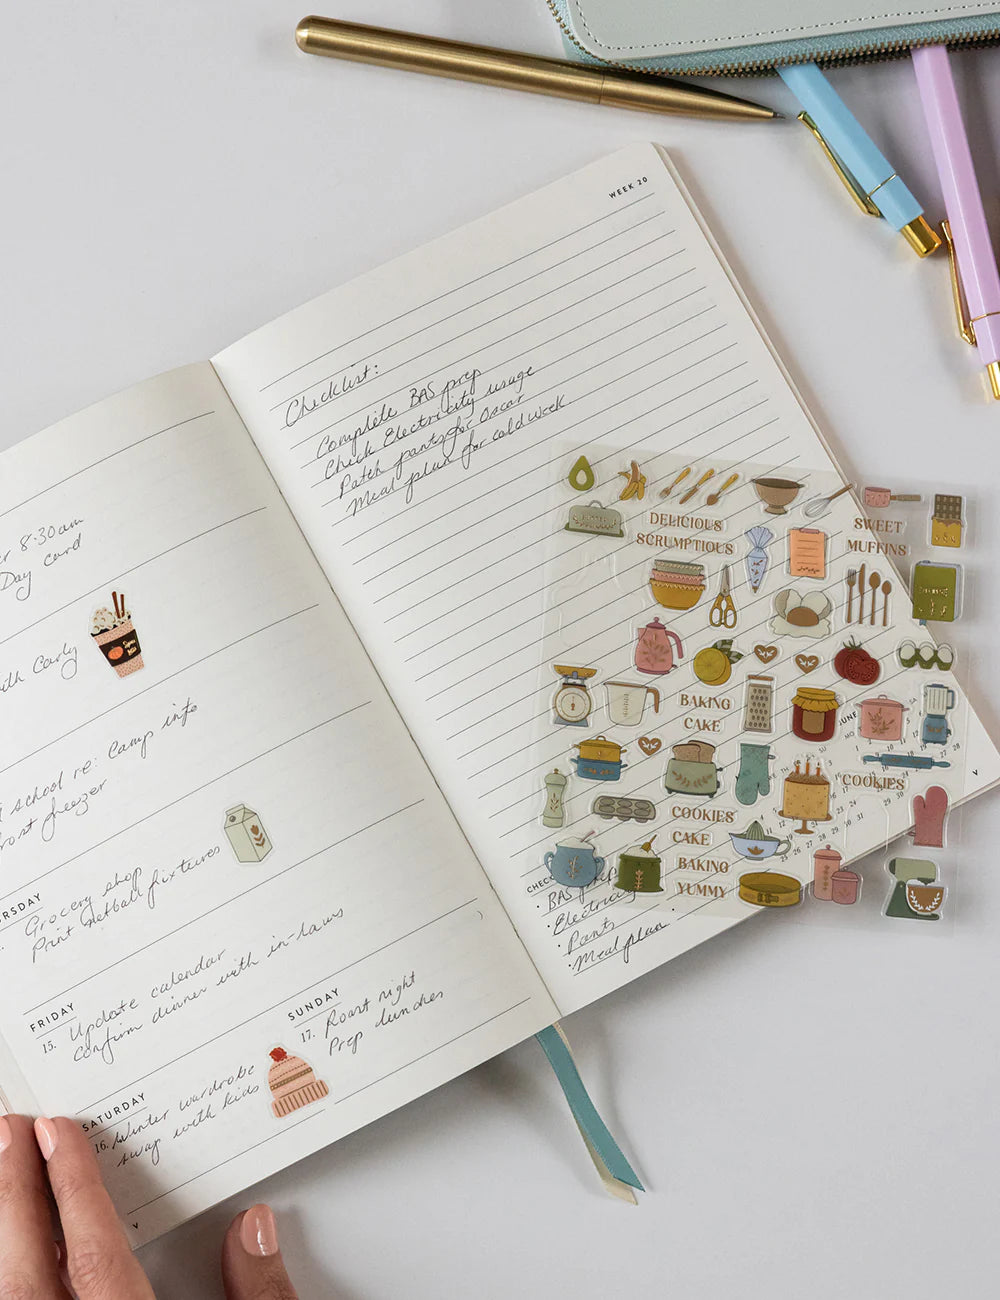 WEEK 20
Checklist:
Complete BAS prep
Check Electricity usage
Patch pants for Oscar
Meal plan for cold week
8:30am
Day card
with Carly
school re: Camp info
freezer
Grocery shop
Print netball fixtures
FRIDAY
15. Update calendar
Confirm dinner with in-laws
SATURDAY
16. Winter wardrobe
swap with kids
SUNDAY
17. Roast night
Prep lunches
V
DELICIOUS
SCRUMPTIOUS
SWEET
MUFFINS
BAKING
CAKE
JUNE
COOKIES
COOKIES
CAKE
BAKING
YUMMY
V
· BAS prep
· Electricity
· Pants
· Meal plan